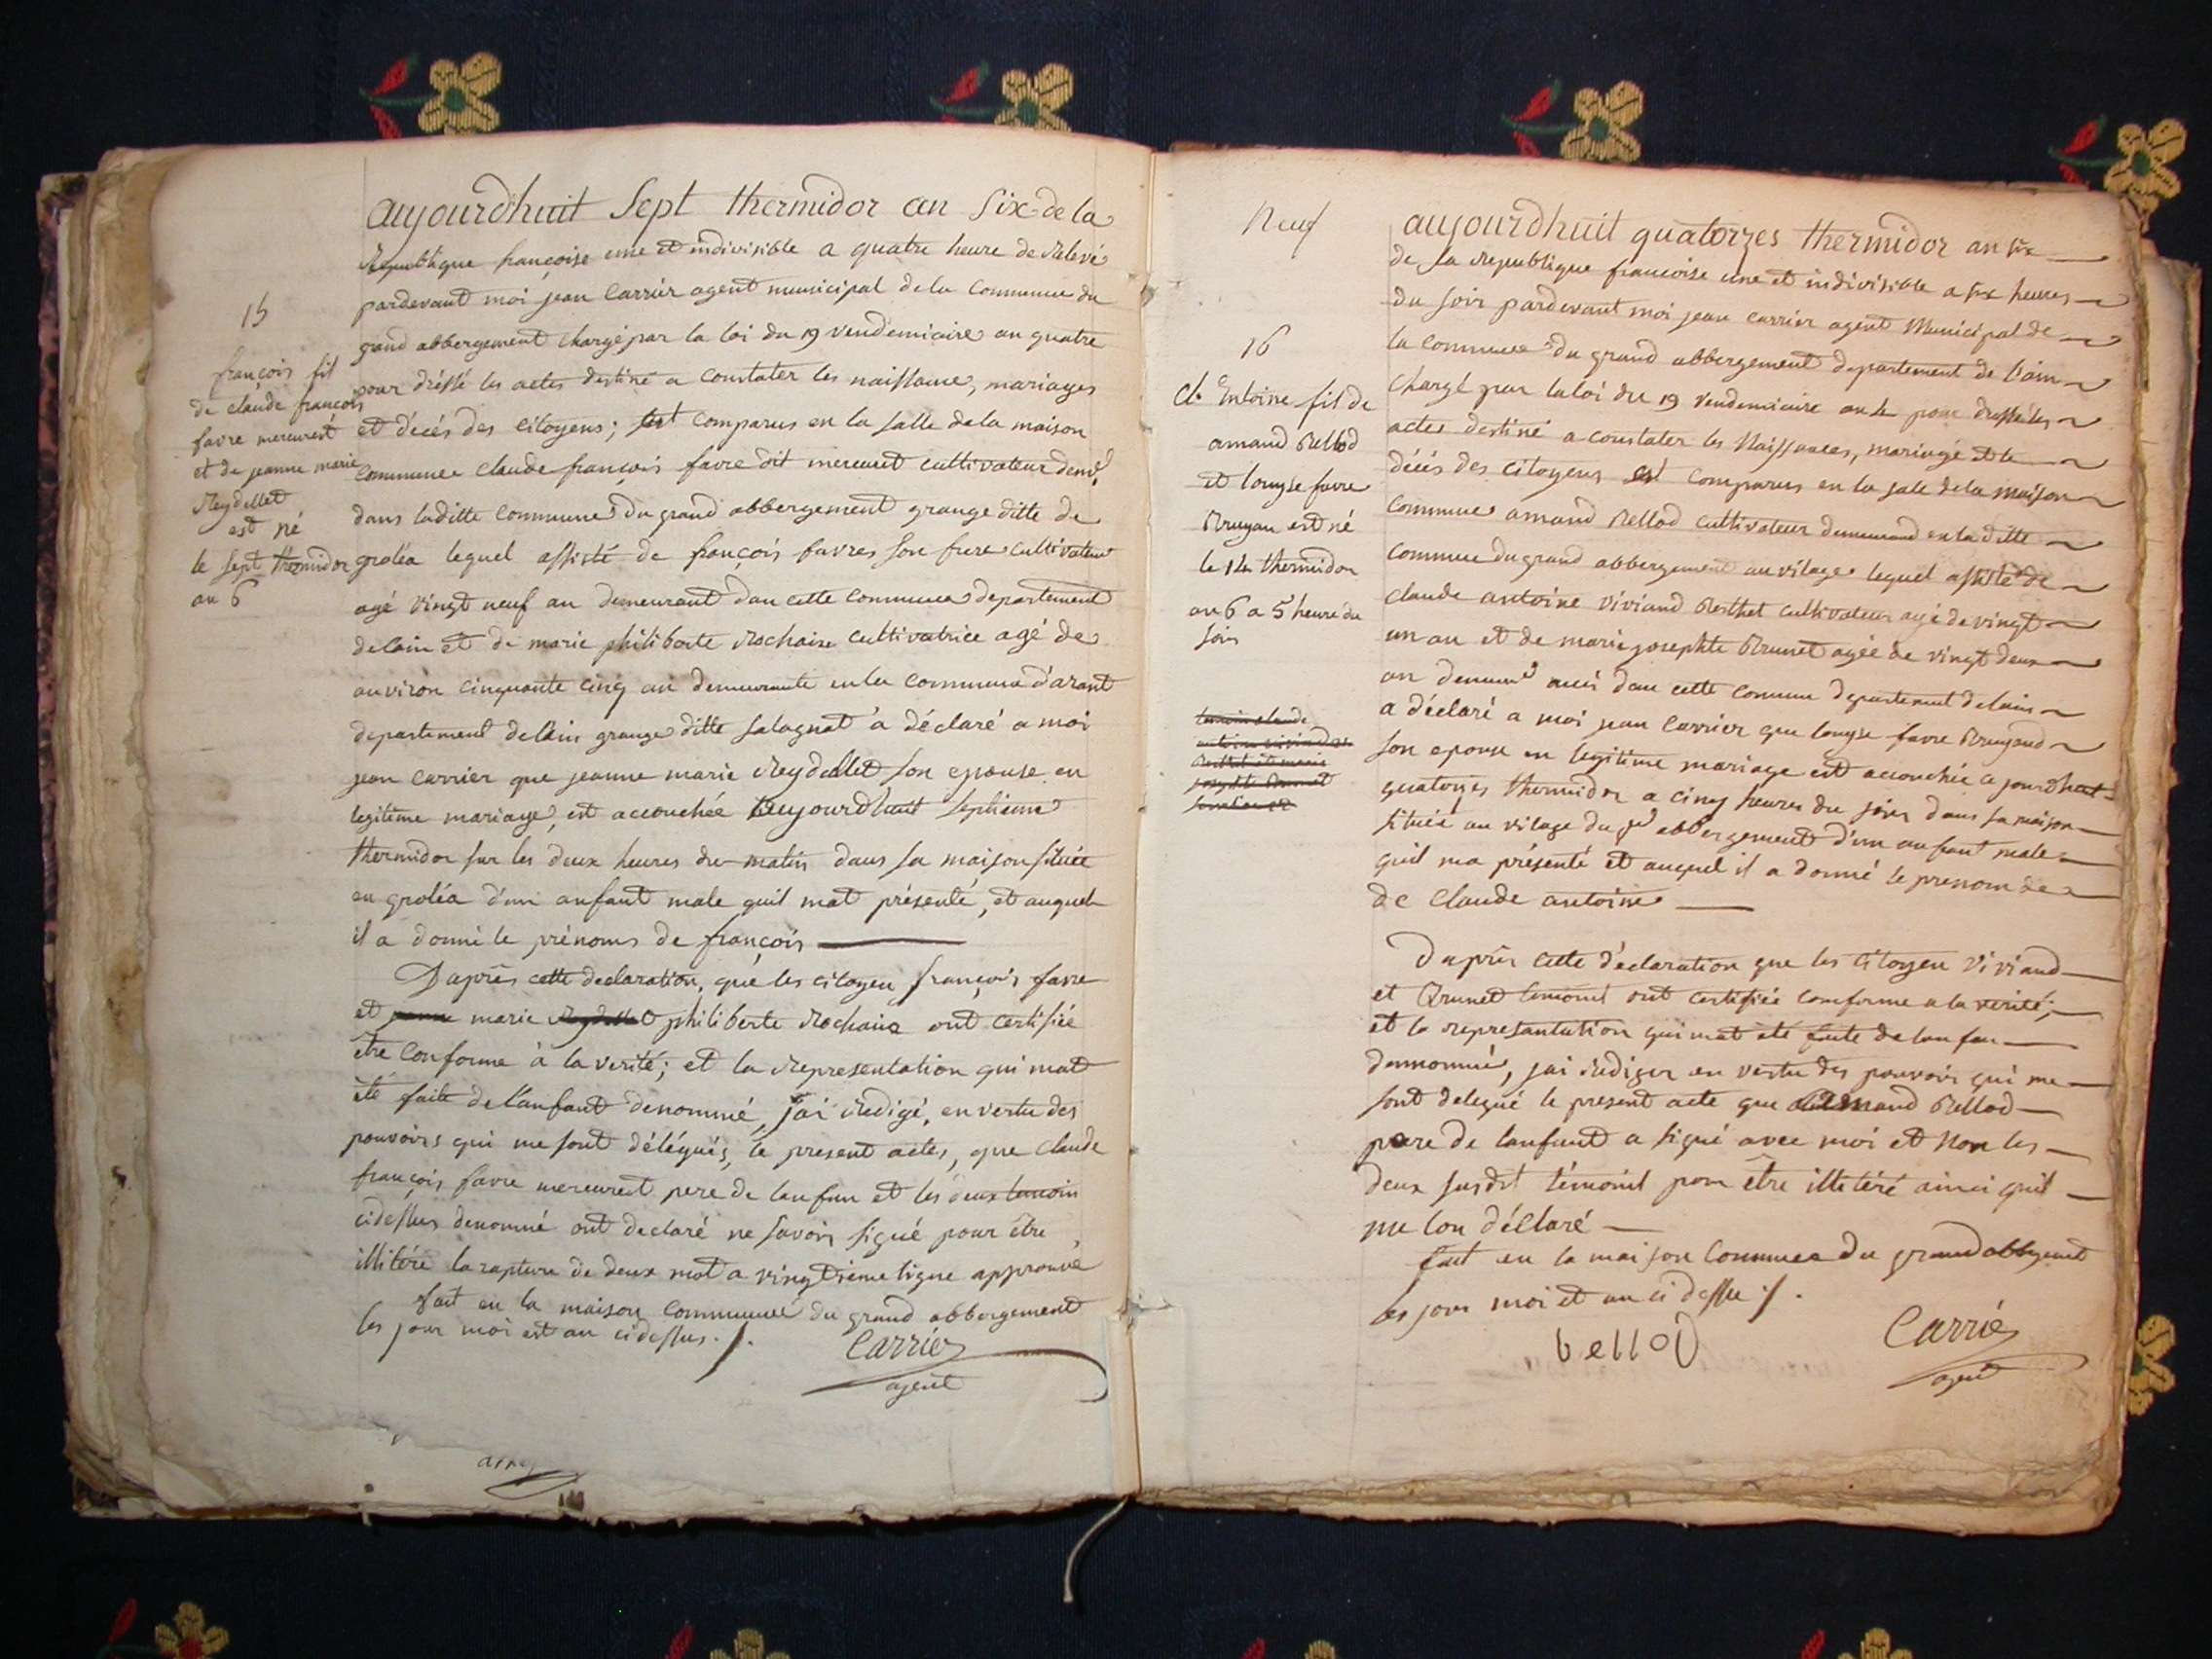 aujourdhuit Sept thermidor an Six de la
Republique françoise une et indivisible a quatre heure de Relevé
pardevant moi jean Carrier agent municipal de la Commune du
grand abbergement chargé par la loi du 19 vendemiaire an quatre
pour dréssé les actes destiné a constater les naissance, mariages
et décés des Citoyens; est comparus en la salle de la maison
commune Claude françois favre dit mercurest cultivateur
dans laditte Commune du grand abbergement grange ditte de
groléa lequel assisté de françois favres son frere cultivateur
agé vingt neuf an demeurant dan cette Commune departement
delain et de marie philiberte Rochaix cultivatrice agé de
anviron cinquante cinq an demeurante en la Commune d'arant
departement delain grange ditte salagnat a déclaré a moi
jean Carrier que jeanne marie Reydellet son epouse en
legitime mariage, est accouchée aujourdhuit septieme
thermidor sur les deux heures du matin dans sa maison située
en groléa d'un anfant male quil mat présenté, et auquel
il a donné le prénoms de françois
Daprês cette declaration, que les citoyen françois favre
et jeanne marie Reydellet philiberte Rochaix ont certifiée
être Conforme à la verité; et la Representation qui mat
été faite de l'anfant denommé, j'ai Redigé, en vertu des
pouvoirs qui me sont délégués, le present actes, que Claude
françois favre mercurest pere de lanfan et les deux temoin
cidessus denomé ont declaré ne savoir signé pour être
illitéré la rapture de deux mot a vingtrieme ligne approuvé
fait en la maison Commune du grand abbergement
les jour moi est an cidessus ./.
Carrier
agent
15
françois fil
de claude françois
favre mercurest
et de jeanne marie
Reydellet
est né
le sept thermidor
an 6
Neuf
aujourdhuit quatorzes thermidor an six
de la Republique francoise une et indivisible a six heures
du soir pardevant moi jean Carrier agent Municipal de
la Commune du grand abbergement departement de l'ain
Chargé par la loi du 19 vendemiaire an 4 pour
actes destiné a constater les Naissances, mariage et le
décés des Citoyens est comparus en la sale de la maison
Commune amand Bellod Cultivateur demeurand en la ditte
Commune du grand abbergement au vilage lequel assisté de
Claude antoine Viviand Berthet Cultivateur agé de vingt
un an et de marie josephte Brunet agée de vingt deux
an dan cette Comune departement delain
a déclaré a moi jean Carrier que louyse favre Bruyand
son epouse en legitime mariage est accouchée ce jourdhuit
quatorzes thermidor a cinq heures du soir dans sa maison
située au vilage du gd abbergement d'un anfant male
quil ma présenté et auquel il a donné le prenom de
de Claude antoine
Daprès cette declaration que les Citoyen Viviand
et Brunet temoint ont certifiée comforme a la verité;
et la representation qui mat été faite de lanfan
dennommé, jai Rediger en vertu des pouvoirs qui me
sont delegué le present acte que amand Bellod
pere de lanfant a signé avec moi et Non les
deux susdit témoint pour être illitéré ainci quil
me lon déclaré
fait en la maison Commune du grand abbergement
les jour moi et an ci dessu ./.
bellod
Carrier
agent
16
Cl. Entoine fil de
amand Bellod
et louyse favre
Bruyan est né
le 14 thermidor
an 6 a 5 heure du
soir